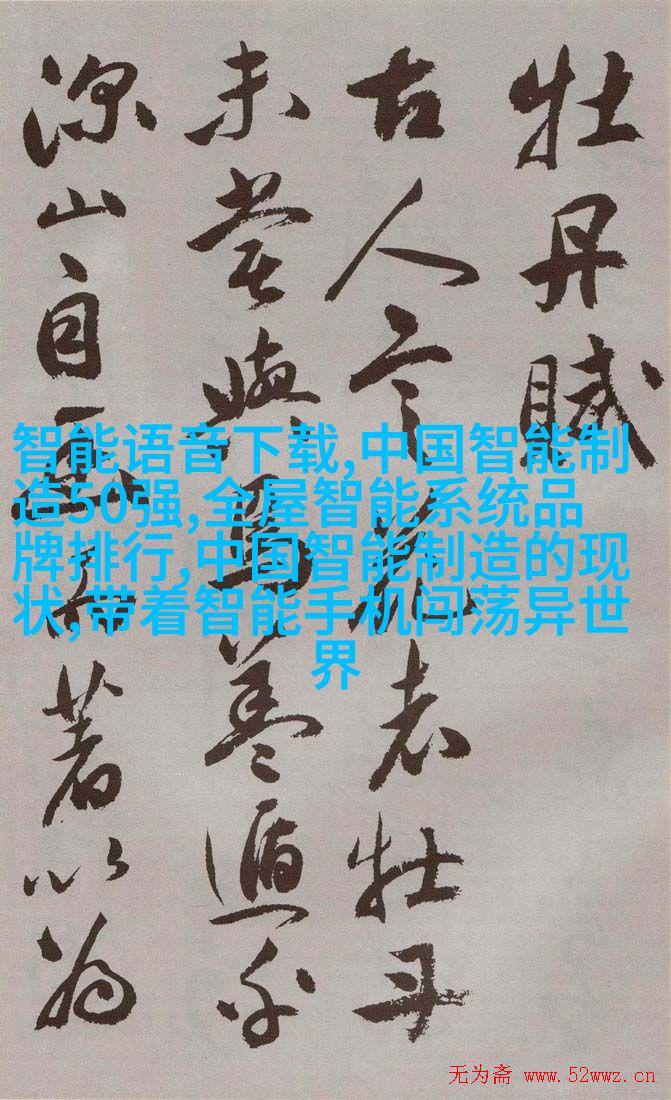 牡丹賦
古人言花者牡丹
未嘗與焉蓋遁乎
深山自幽而著以為
智能语音下载,中国智能制
造50强,全屋智能系统品
牌排行,中国智能制造的现
状,带着智能手机闯荡异世
界
无为斋 www.52wwz.cn